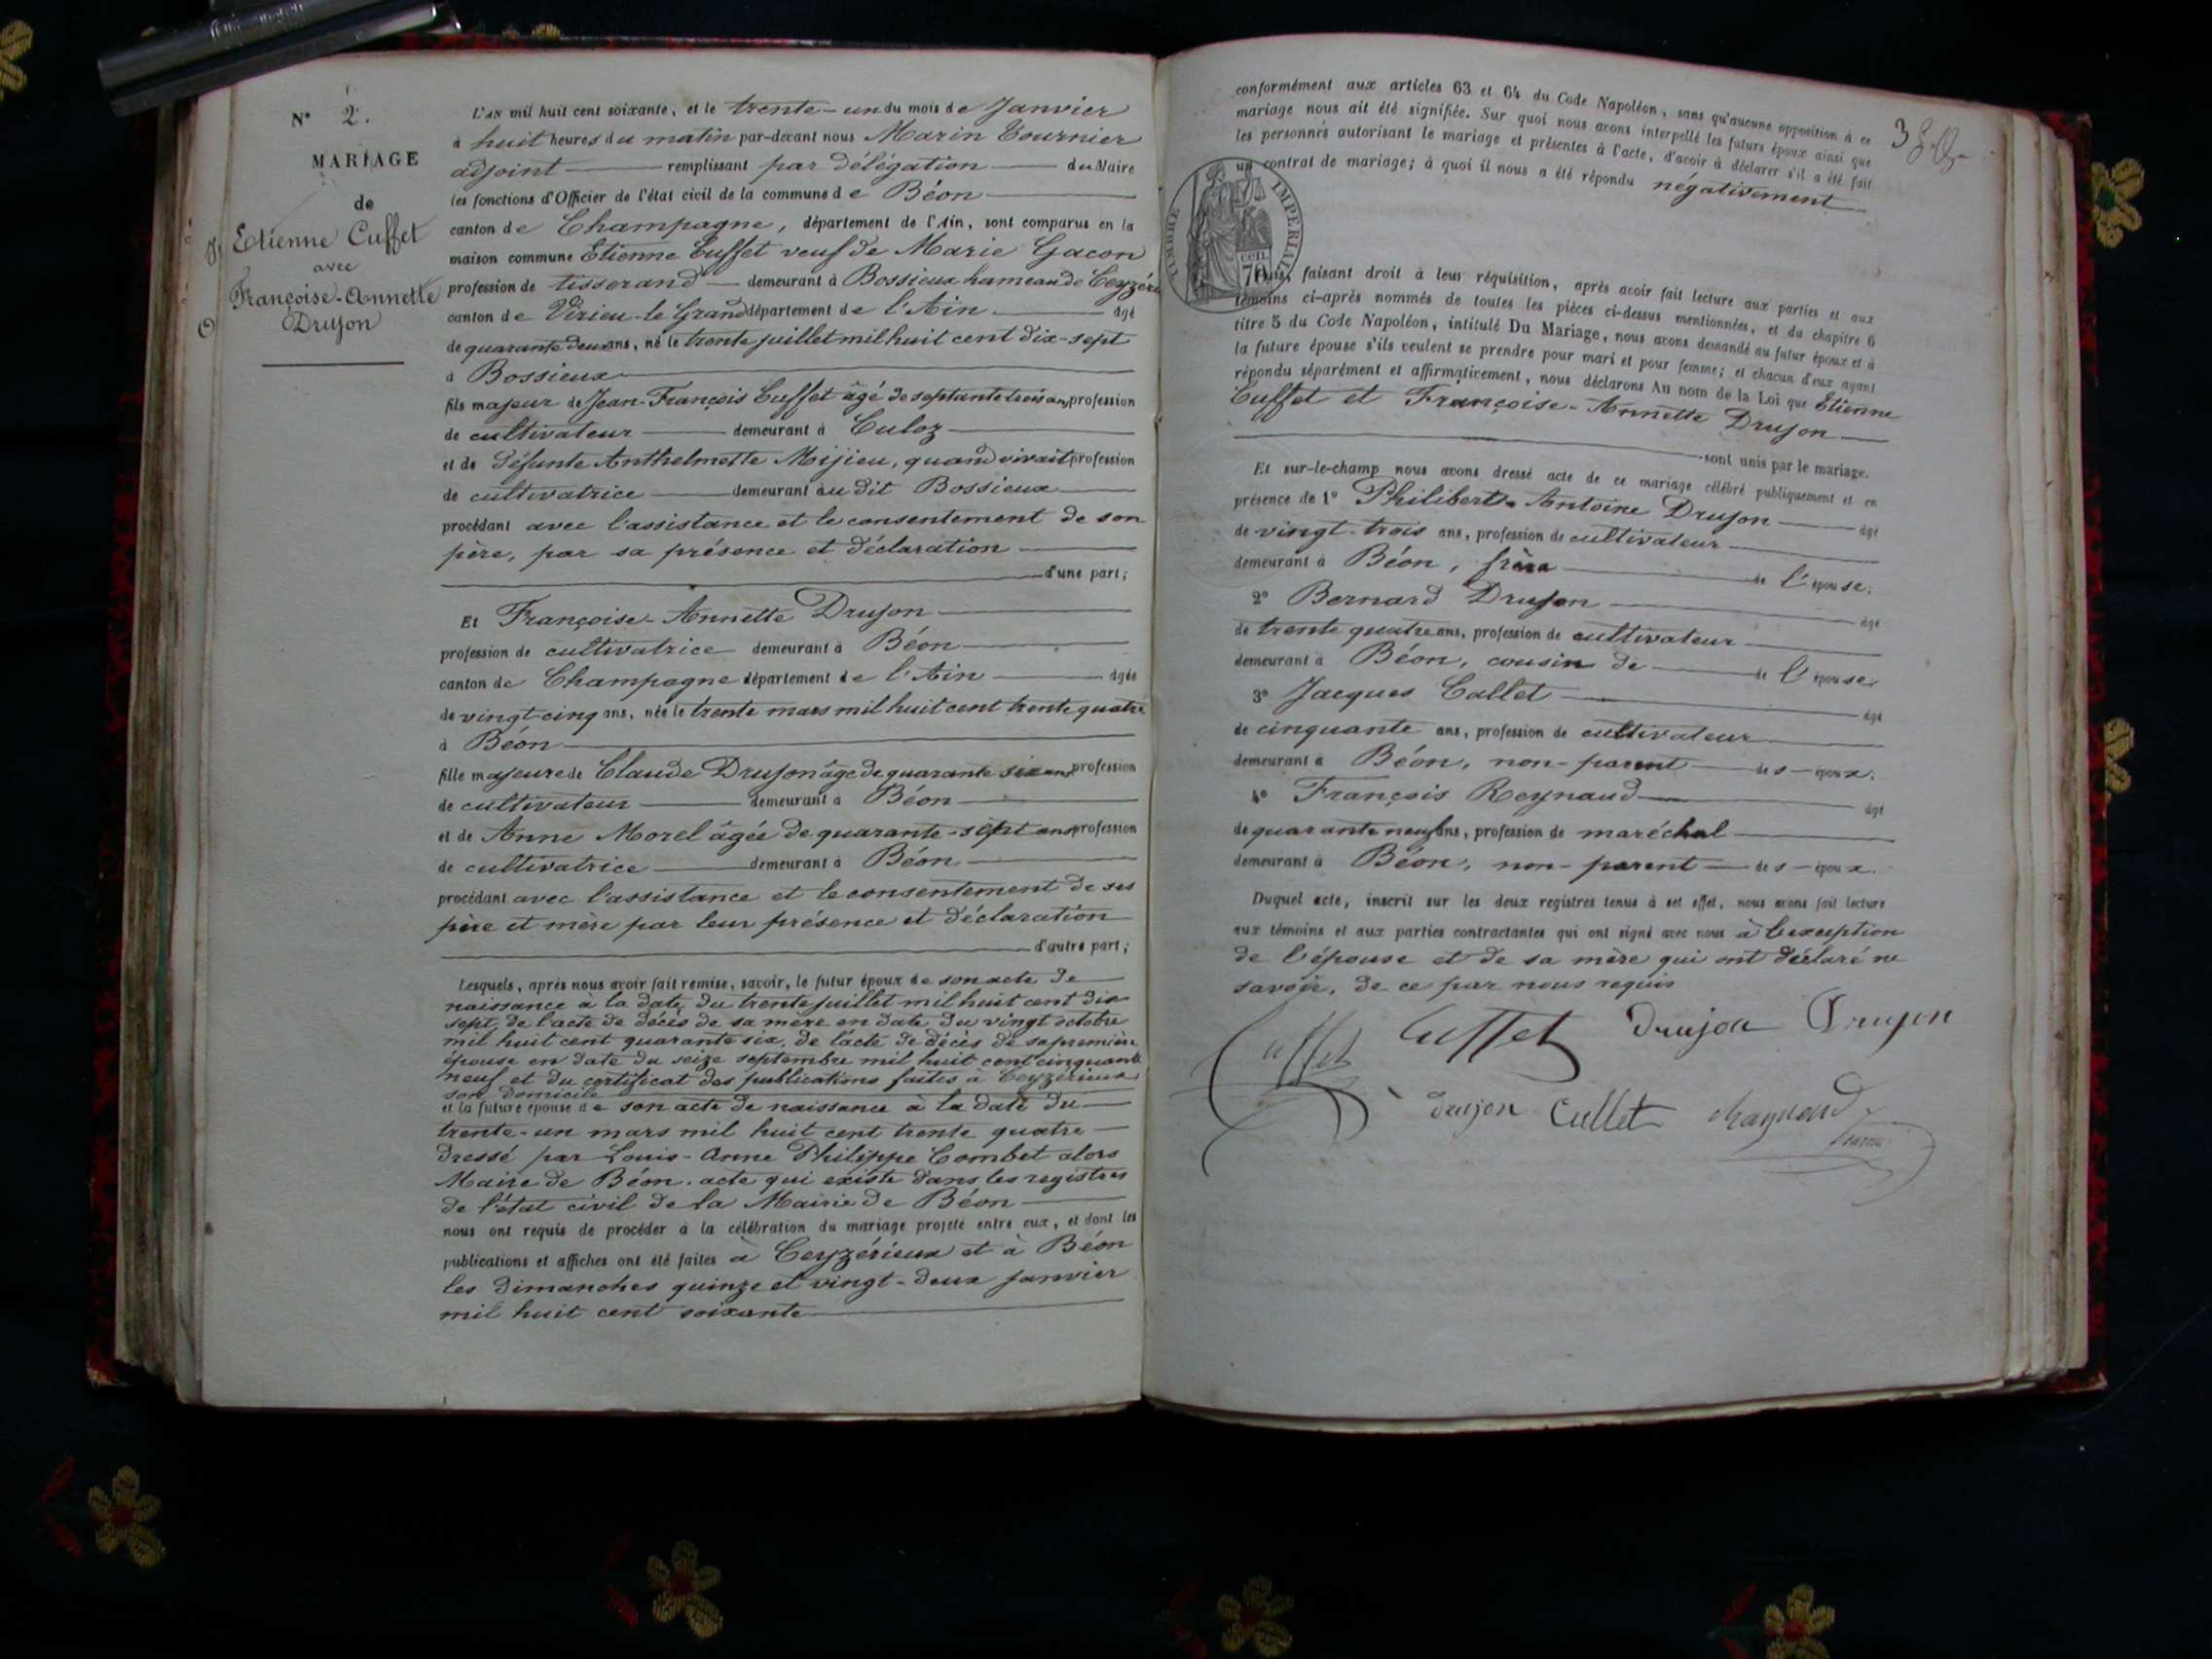 N° 2.
MARIAGE
de
Etienne Cuffet
avec
Françoise-Annette
Drujon
L'AN mil huit cent soixante, et le trente-un du mois de Janvier
à huit heures du matin par-devant nous Marin Tournier
adjoint remplissant par délégation du Maire
les fonctions d'Officier de l'état civil de la commune de Béon
canton de Champagne, département de l'Ain, sont comparus en la
maison commune Etienne Cuffet veuf de Marie Gacon
profession de tisserand demeurant à Bossieux hameau de Ceyzéri
canton de Virieu-le-Grand département de l'Ain âgé
de quarante deux ans, né le trente juillet mil huit cent dix-sept
à Bossieux
fils majeur de Jean-François Cuffet âgé de septante trois ans profession
de cultivateur demeurant à Culoz
et de défunte Anthelmette Mijieu, quand vivait profession
de cultivatrice demeurant au dit Bossieux
procédant avec l'assistance et le consentement de son
père, par sa présence et déclaration
d'une part;
Et Françoise-Annette Drujon
profession de cultivatrice demeurant à Béon
canton de Champagne département de l'Ain âgée
de vingt-cinq ans, née le trente mars mil huit cent trente quatre
à Béon
fille majeure de Claude Drujon âgé de quarante six ans profession
de cultivateur demeurant à Béon
et de Anne Morel âgée de quarante-sept ans profession
de cultivatrice demeurant à Béon
procédant avec l'assistance et le consentement de ses
père et mère par leur présence et déclaration
d'autre part;
Lesquels, après nous avoir fait remise, savoir, le futur époux de son acte de
naissance à la date du trente juillet mil huit cent dix
sept, de l'acte de décès de sa mère en date du vingt octobre
mil huit cent quarante six, de l'acte de décès de sa première
épouse en date du seize septembre mil huit cent cinquante
neuf et du certificat des publications faites à Ceyzérieux
son domicile
et la future épouse de son acte de naissance à la date du
trente-un mars mil huit cent trente quatre
dressé par Louis-Anne Philippe Combet alors
Maire de Béon. acte qui existe dans les registres
de l'état civil de la Mairie de Béon
nous ont requis de procéder à la célébration du mariage projeté entre eux, et dont les
publications et affiches ont été faites à Ceyzérieux et à Béon
les dimanches quinze et vingt-deux janvier
mil huit cent soixante
conformément aux articles 63 et 64 du Code Napoléon, sans qu'aucune opposition à ce
mariage nous ait été signifiée. Sur quoi nous avons interpellé les futurs époux ainsi que
les personnes autorisant le mariage et présentes à l'acte, d'avoir à déclarer s'il a été fait
un contrat de mariage; à quoi il nous a été répondu négativement
TIMBRE IMPERIAL
CEN.
70
faisant droit à leur réquisition, après avoir fait lecture aux parties et aux
témoins ci-après nommés de toutes les pièces ci-dessus mentionnées, et du chapitre 6
titre 5 du Code Napoléon, intitulé Du Mariage, nous avons demandé au futur époux et à
la future épouse s'ils veulent se prendre pour mari et pour femme; et chacun d'eux ayant
répondu séparément et affirmativement, nous déclarons Au nom de la Loi que Etienne
Cuffet et Françoise-Annette Drujon
sont unis par le mariage.
Et sur-le-champ nous avons dressé acte de ce mariage célébré publiquement et en
présence de 1° Philibert-Antoine Drujon âgé
de vingt-trois ans, profession de cultivateur
demeurant à Béon, frère de l'épouse.
2° Bernard Drujon âgé
de trente quatre ans, profession de cultivateur
demeurant à Béon, cousin de de l'épouse.
3° Jacques Callet âgé
de cinquante ans, profession de cultivateur
demeurant à Béon, non-parent des époux.
4° François Reynaud âgé
de quarante neuf ans, profession de maréchal
demeurant à Béon, non-parent des époux.
Duquel acte, inscrit sur les deux registres tenus à cet effet, nous avons fait lecture
aux témoins et aux parties contractantes qui ont signé avec nous à l'exception
de l'épouse et de sa mère qui ont déclaré ne
savoir, de ce par nous requis
Cuffet Cuffet Drujon Drujon
Drujon Cullet